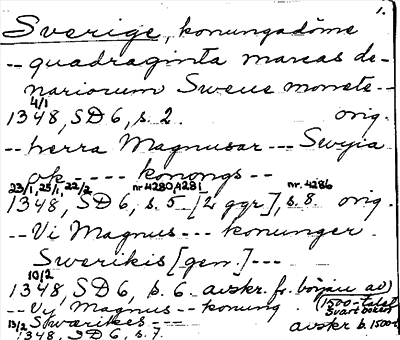 1.
Sverige, konungadöme
-- quadraginta marcas de-
nariorum Sweue monete --
4/1
1348, SD 6, s. 2. orig.
-- herra Magnusar --- Swyia
ok - - - - konongs --
23/1, 25/1, 22/2 nr 4280, 4281 nr. 4286
1348, SD 6, s. 5 [2 ggr], s. 8. orig.
-- Vi Magnus --- konunger
Swerikis [gen.] ---
10/2
1348, SD 6, s. 6. avskr. fr. början av
-- Vy Magnus -- konung (1500-talet
Swærikes --- Svart boken)
13/2
1348, SD 6, s. 7. avskr b. 1500-t